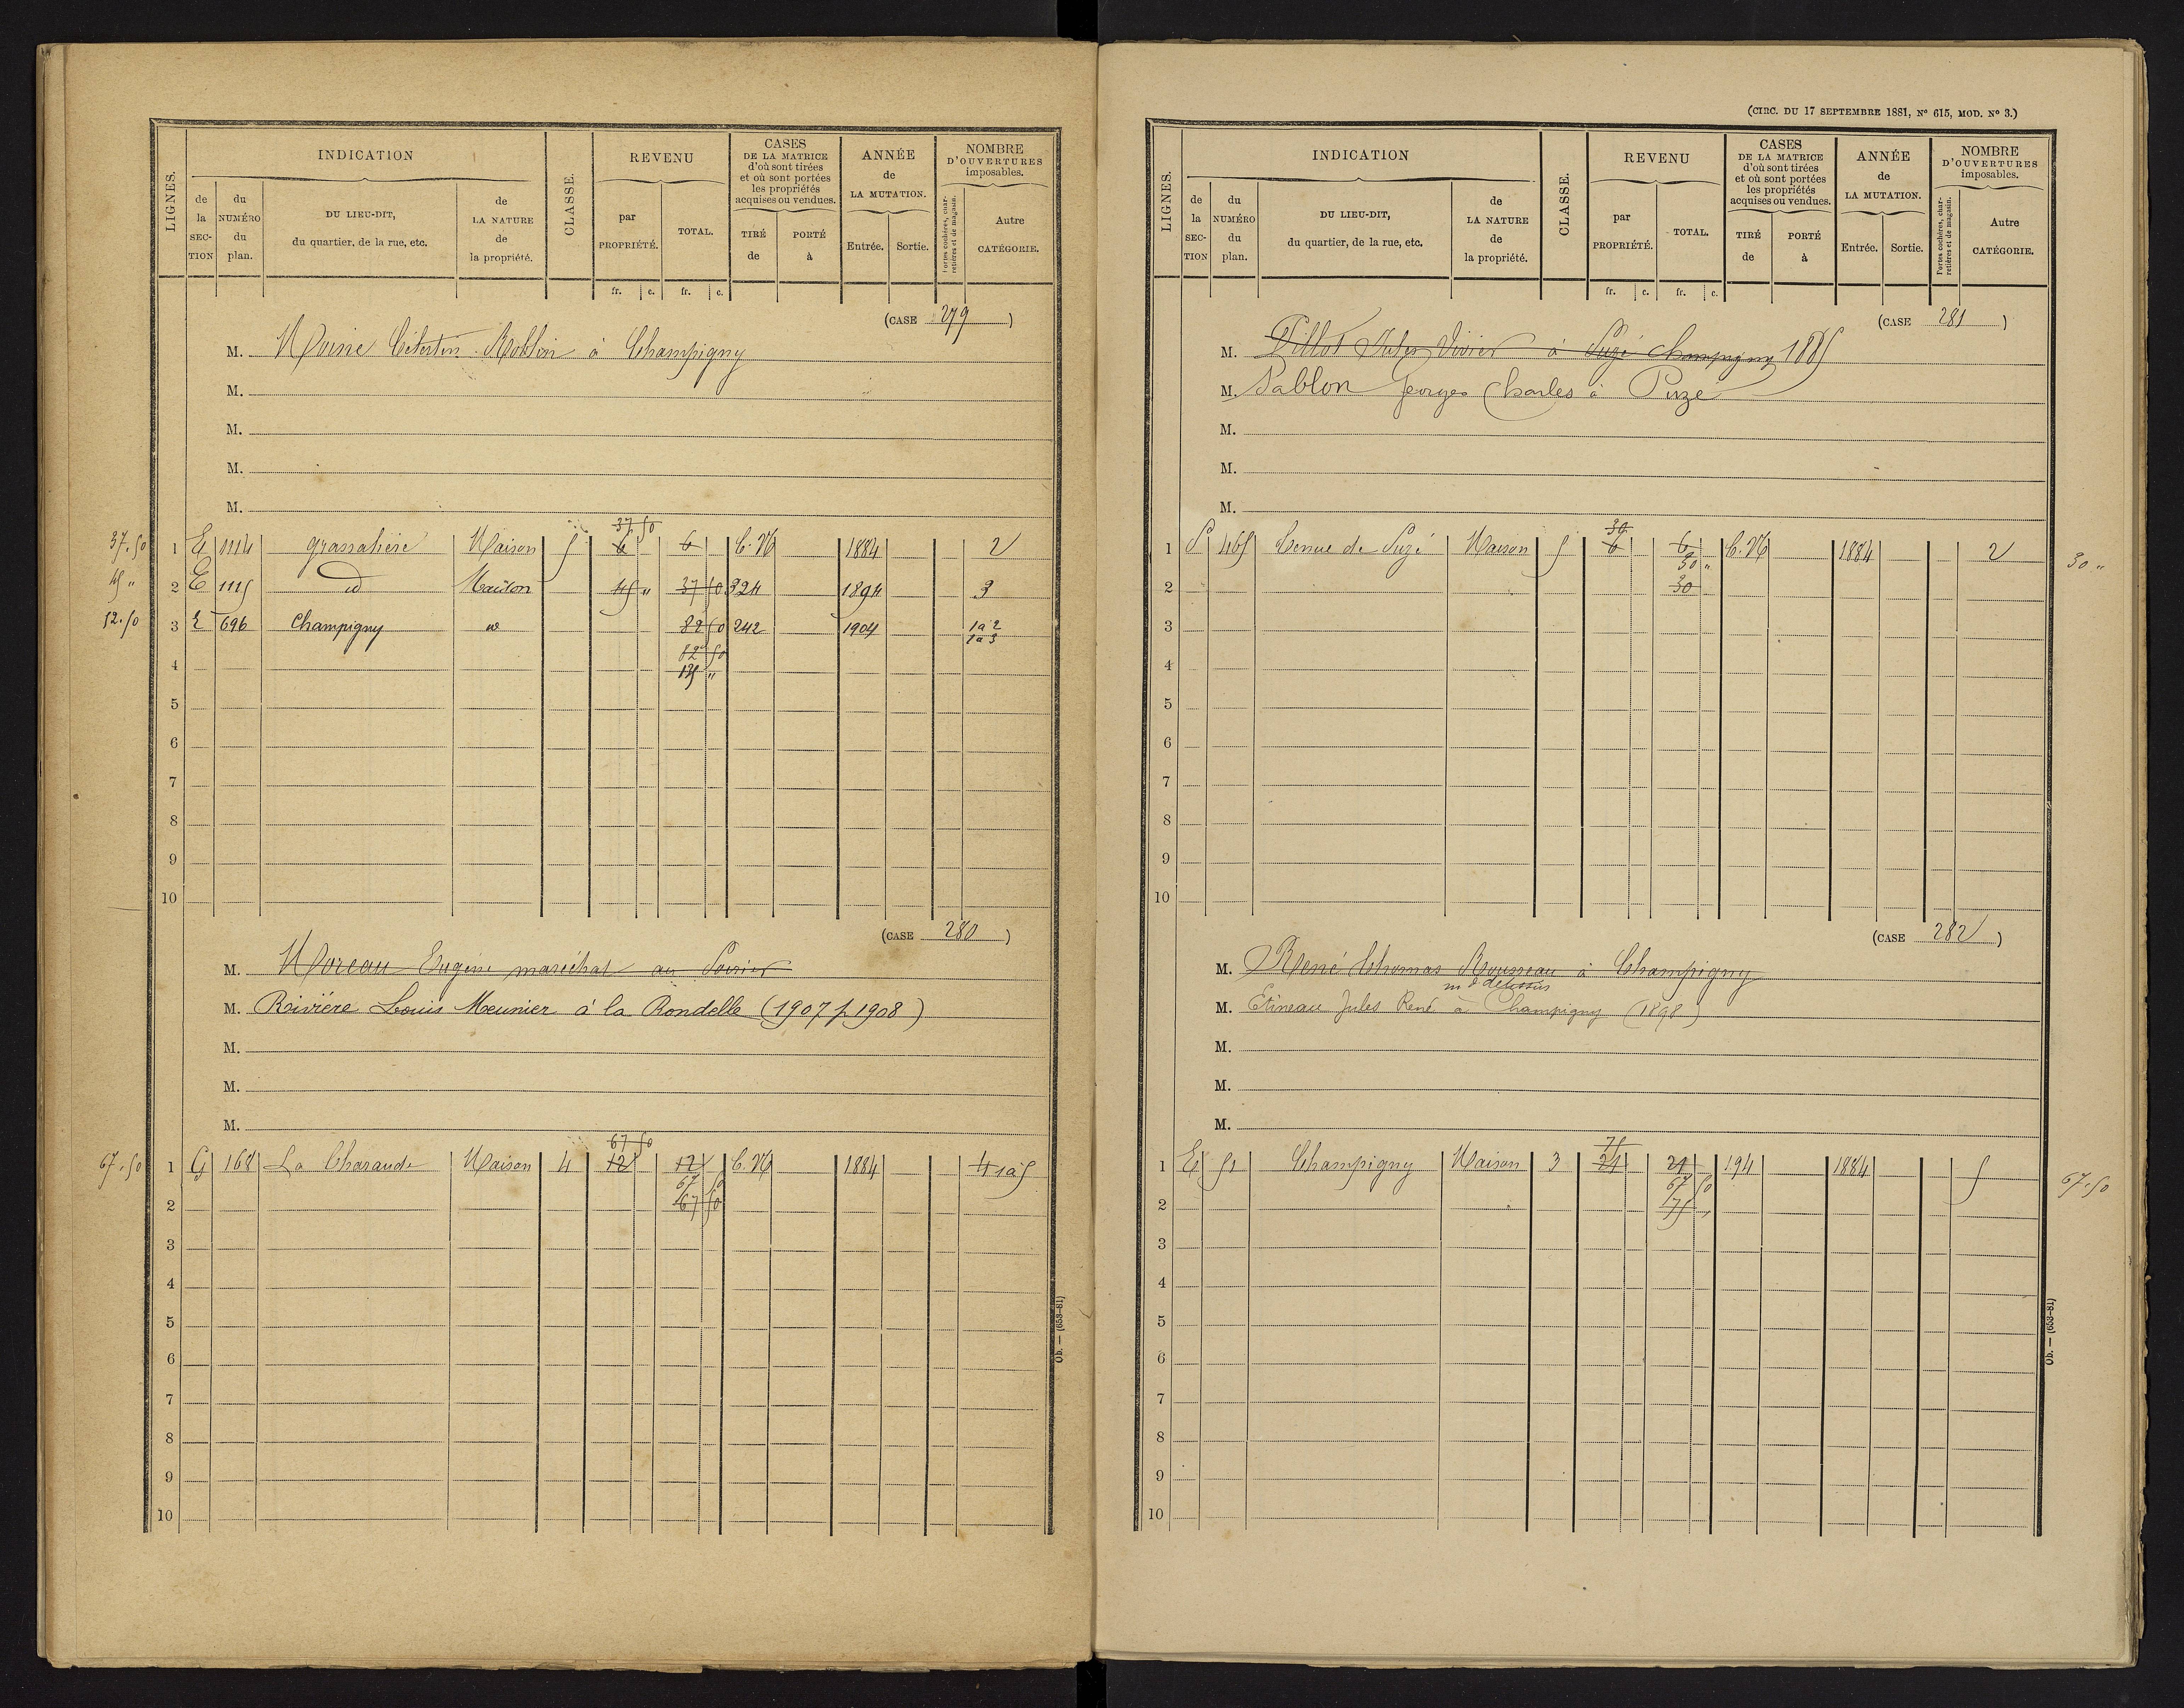 LIGNES.
INDICATION
de la SECTION
du NUMÉRO du plan.
DU LIEU-DIT, du quartier, de la rue, etc.
de LA NATURE de la propriété.
CLASSE.
REVENU
par PROPRIÉTÉ.
TOTAL.
fr. c. fr. c.
CASES DE LA MATRICE d'où sont tirées et où sont portées les propriétés acquises ou vendues.
TIRÉ de
PORTÉ à
ANNÉE de LA MUTATION.
Entrée. Sortie.
NOMBRE D'OUVERTURES imposables.
Portes cochères, charretières et de magasin.
Autre CATÉGORIE.
(CASE 279)
M. Moine Célestin Roblin à Champigny
M.
M.
M.
M.
37 50
37.50 1 E 1114 grassatière Maison 5 6 6 C.N 1884 2
45 " 2 E 1115 id Maison 45 " 37 50 324 1894 3
52.50 3 E 696 Champigny id 82 50 242 1904 1a2
1a3
4 82 50
135 "
5
6
7
8
9
10
(CASE 280)
M. Moreau Eugène maréchal au
M. Rivière Louis Meunier à la Rondelle (1907 p 1908)
M.
M.
M.
67 50
67.50 1 G 168 La Charaude Maison 4 12 12 C.N 1884 4 1a5
67 50
2 67 50
3
4
5
6
7
8
9
10
Ob. — (653-81)
(CIRC. DU 17 SEPTEMBRE 1881, N° 615, MOD. N° 3.)
LIGNES.
INDICATION
de la SECTION
du NUMÉRO du plan.
DU LIEU-DIT, du quartier, de la rue, etc.
de LA NATURE de la propriété.
CLASSE.
REVENU
par PROPRIÉTÉ.
TOTAL.
fr. c. fr. c.
CASES DE LA MATRICE d'où sont tirées et où sont portées les propriétés acquises ou vendues.
TIRÉ de
PORTÉ à
ANNÉE de LA MUTATION.
Entrée. Sortie.
NOMBRE D'OUVERTURES imposables.
Portes cochères, charretières et de magasin.
Autre CATÉGORIE.
(CASE 281)
M. Pillot Jules Vivier à Suzé Champigny 1885
M. Sablon Georges Charles à Puzé
M.
M.
M.
30
1 465 de Suzé Maison 5 6 6 C.N 1884 2 30 "
30 "
2 30
3
4
5
6
7
8
9
10
(CASE 282)
M. René Thomas Rousseau à Champigny
M. Etineau Jules René à Champigny (1898)
M.
M.
M.
75
1 E 51 Champigny Maison 3 21 21 194 1884 5 67.50
67 50
2 75 "
3
4
5
6
7
8
9
10
Ob. — (653-81)